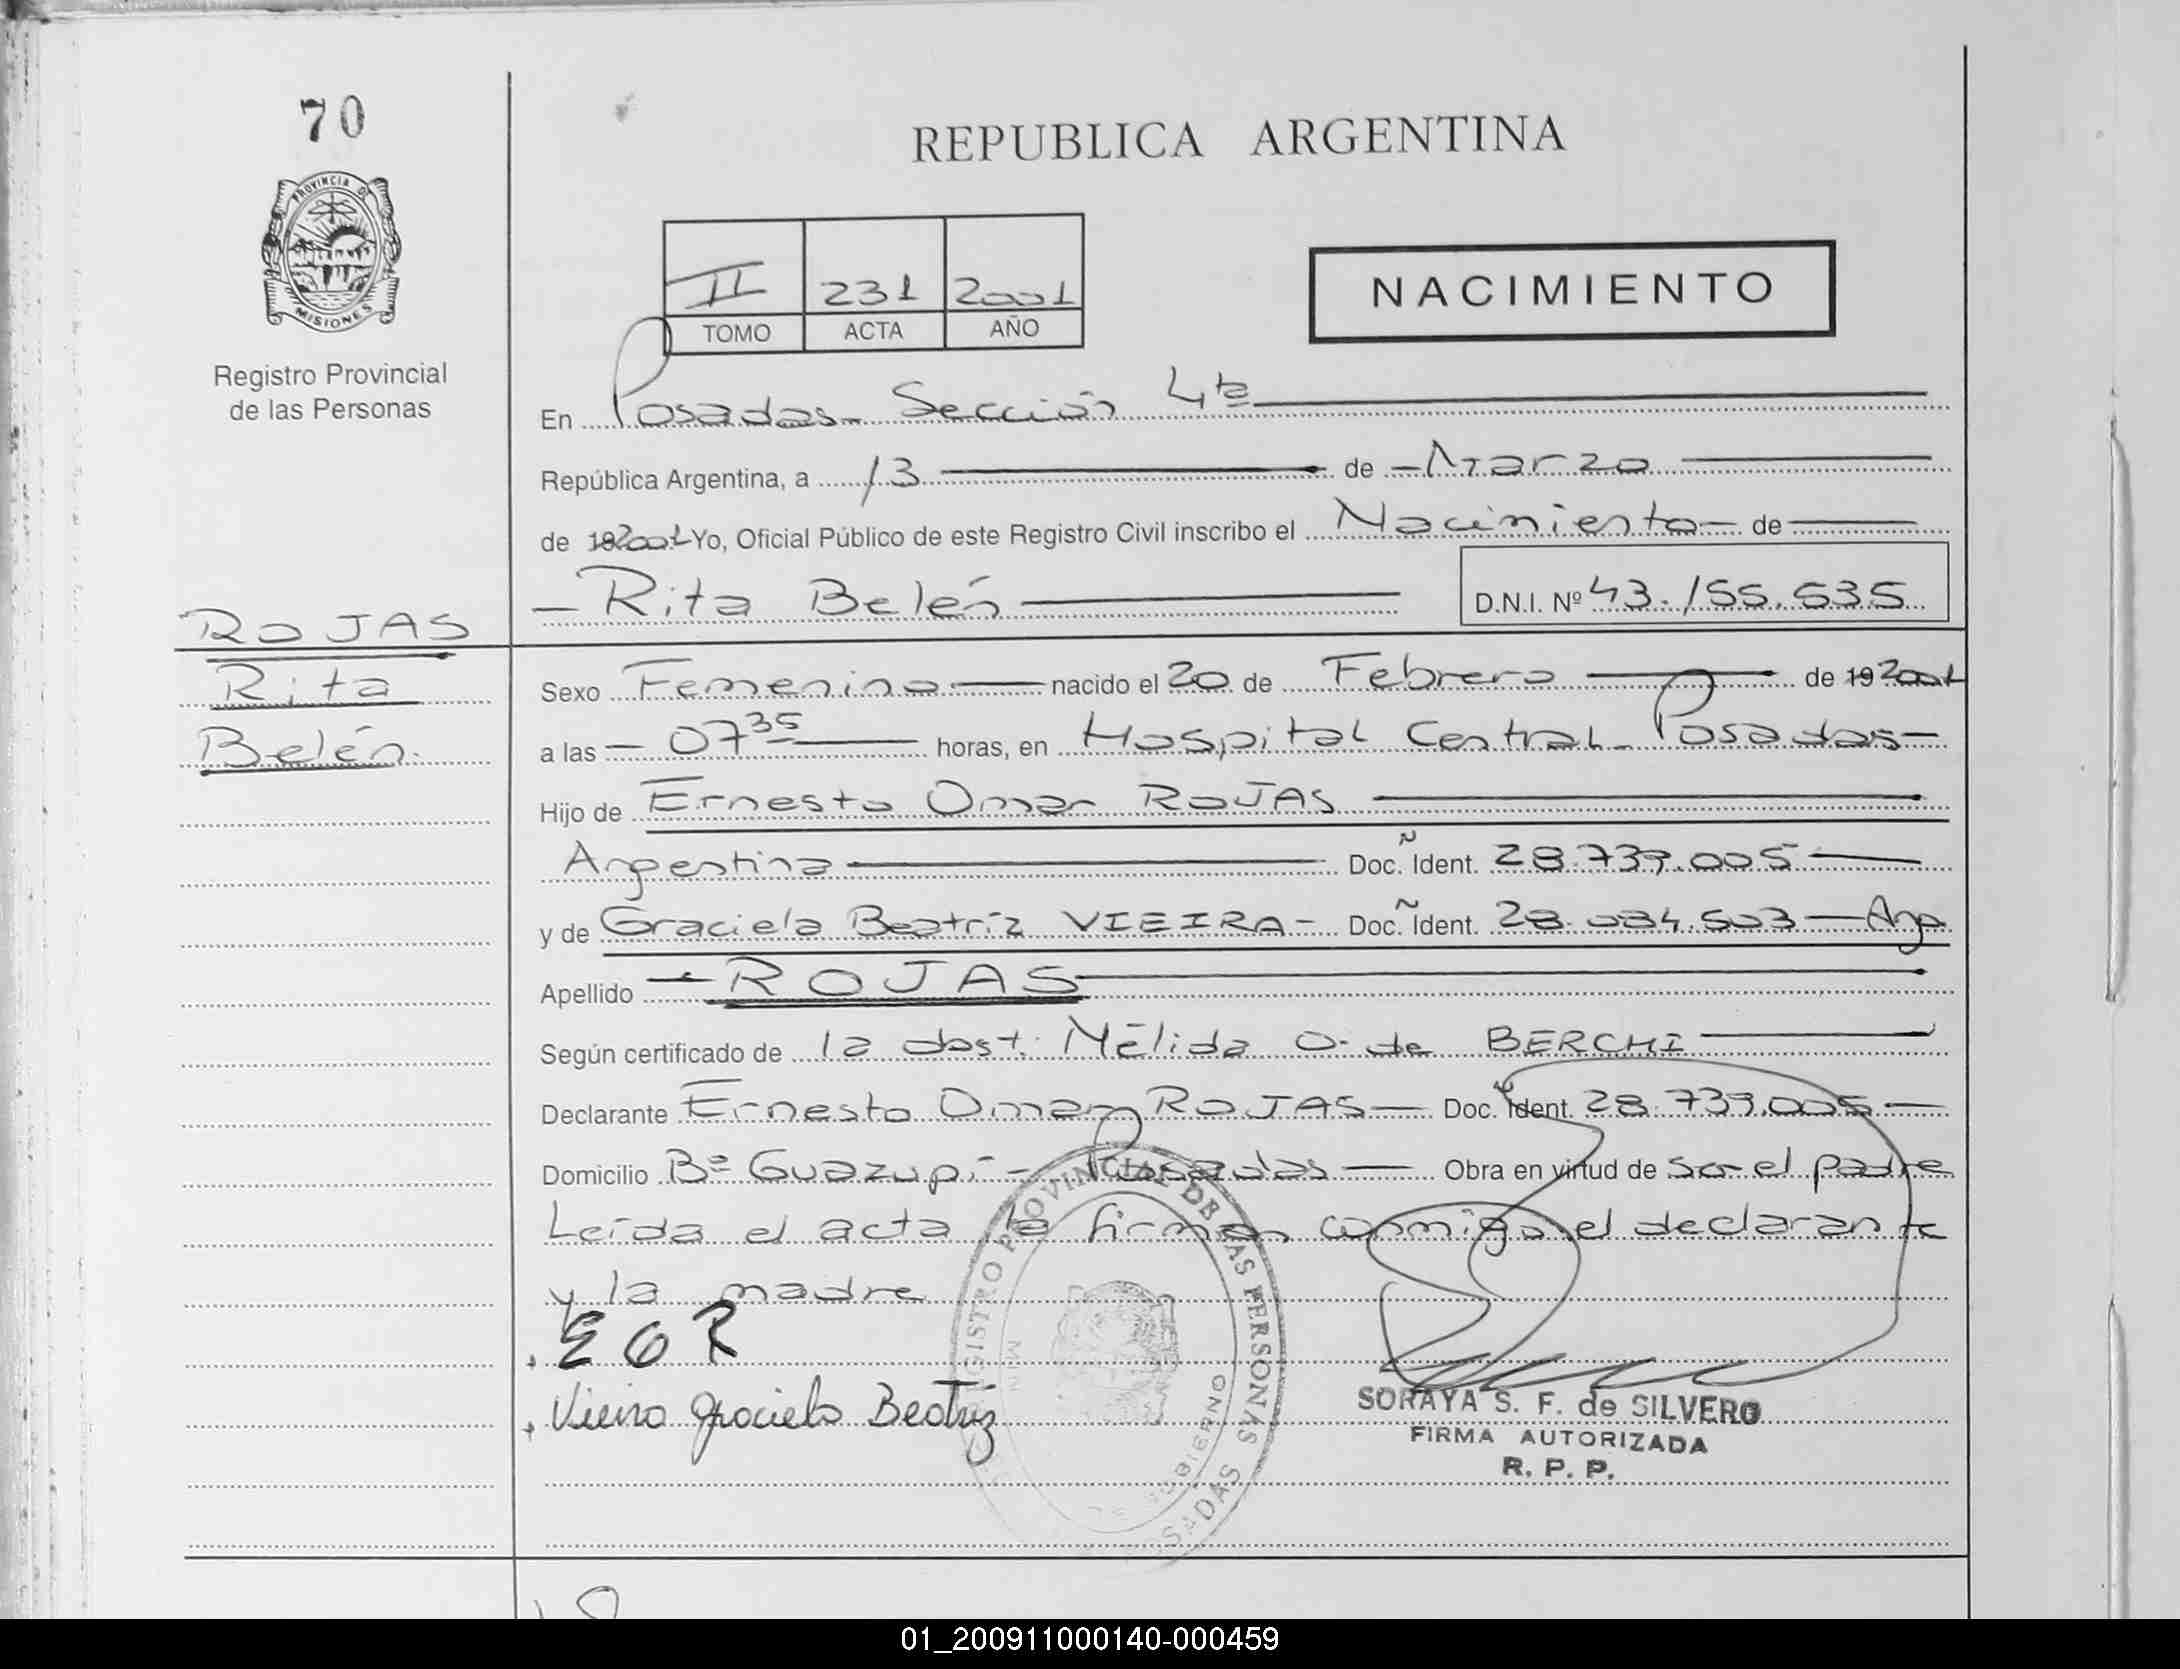 70
REPUBLICA ARGENTINA
PROVINCIA DE
MISIONES
Registro Provincial
de las Personas
II 231 2001
TOMO ACTA AÑO
NACIMIENTO
En Posadas - Sección 4ta
República Argentina, a 13 de - Marzo
de 192001 Yo, Oficial Público de este Registro Civil inscribo el Nacimiento - de
- Rita Belén
D.N.I. Nº 43.155.535
ROJAS
Rita
Belén.
Sexo Femenino nacido el 20 de Febrero de 192001
a las - 07 35 horas, en Hospital Central - Posadas -
Hijo de Ernesto Omar ROJAS
Argentina Doc. Ident. 28.739.005
y de Graciela Beatríz VIEIRA - Doc. Ident. 28.084.503 - Arg
Apellido - ROJAS
Según certificado de la obst. Nélida O. de BERCHI
Declarante Ernesto Omar ROJAS - Doc. Ident. 28.739.005 -
Domicilio Bº Guazupí - Posadas - Obra en virtud de ser el padre
Leída el acta la firman conmigo el declarante
y la madre
E O R
Vieira Graciela Beatriz
REGISTRO PROVINCIAL DE LAS PERSONAS
GOBIERNO
SORAYA S. F. de SILVERO
FIRMA AUTORIZADA
R. P. P.
01_200911000140-000459